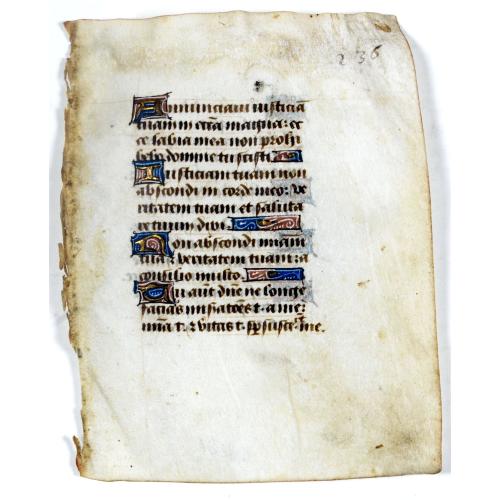 236
Annunciavi iusticiā
tuam in ecc̄ia magna: ec
ce labia mea non prohi
bebo domine tu scisti.
Iusticiam tuam non
abscondi in corde meo: ve
ritatem tuam et saluta
re tuum dixi.
Non abscondi m̄iam
tuā & veritatem tuam: a
consilio multo.
Tu aūt dn̄e ne longe
facias mis̄atōes t. a me:
m̄a t. & v̄itas t. sp̄ susce. me.